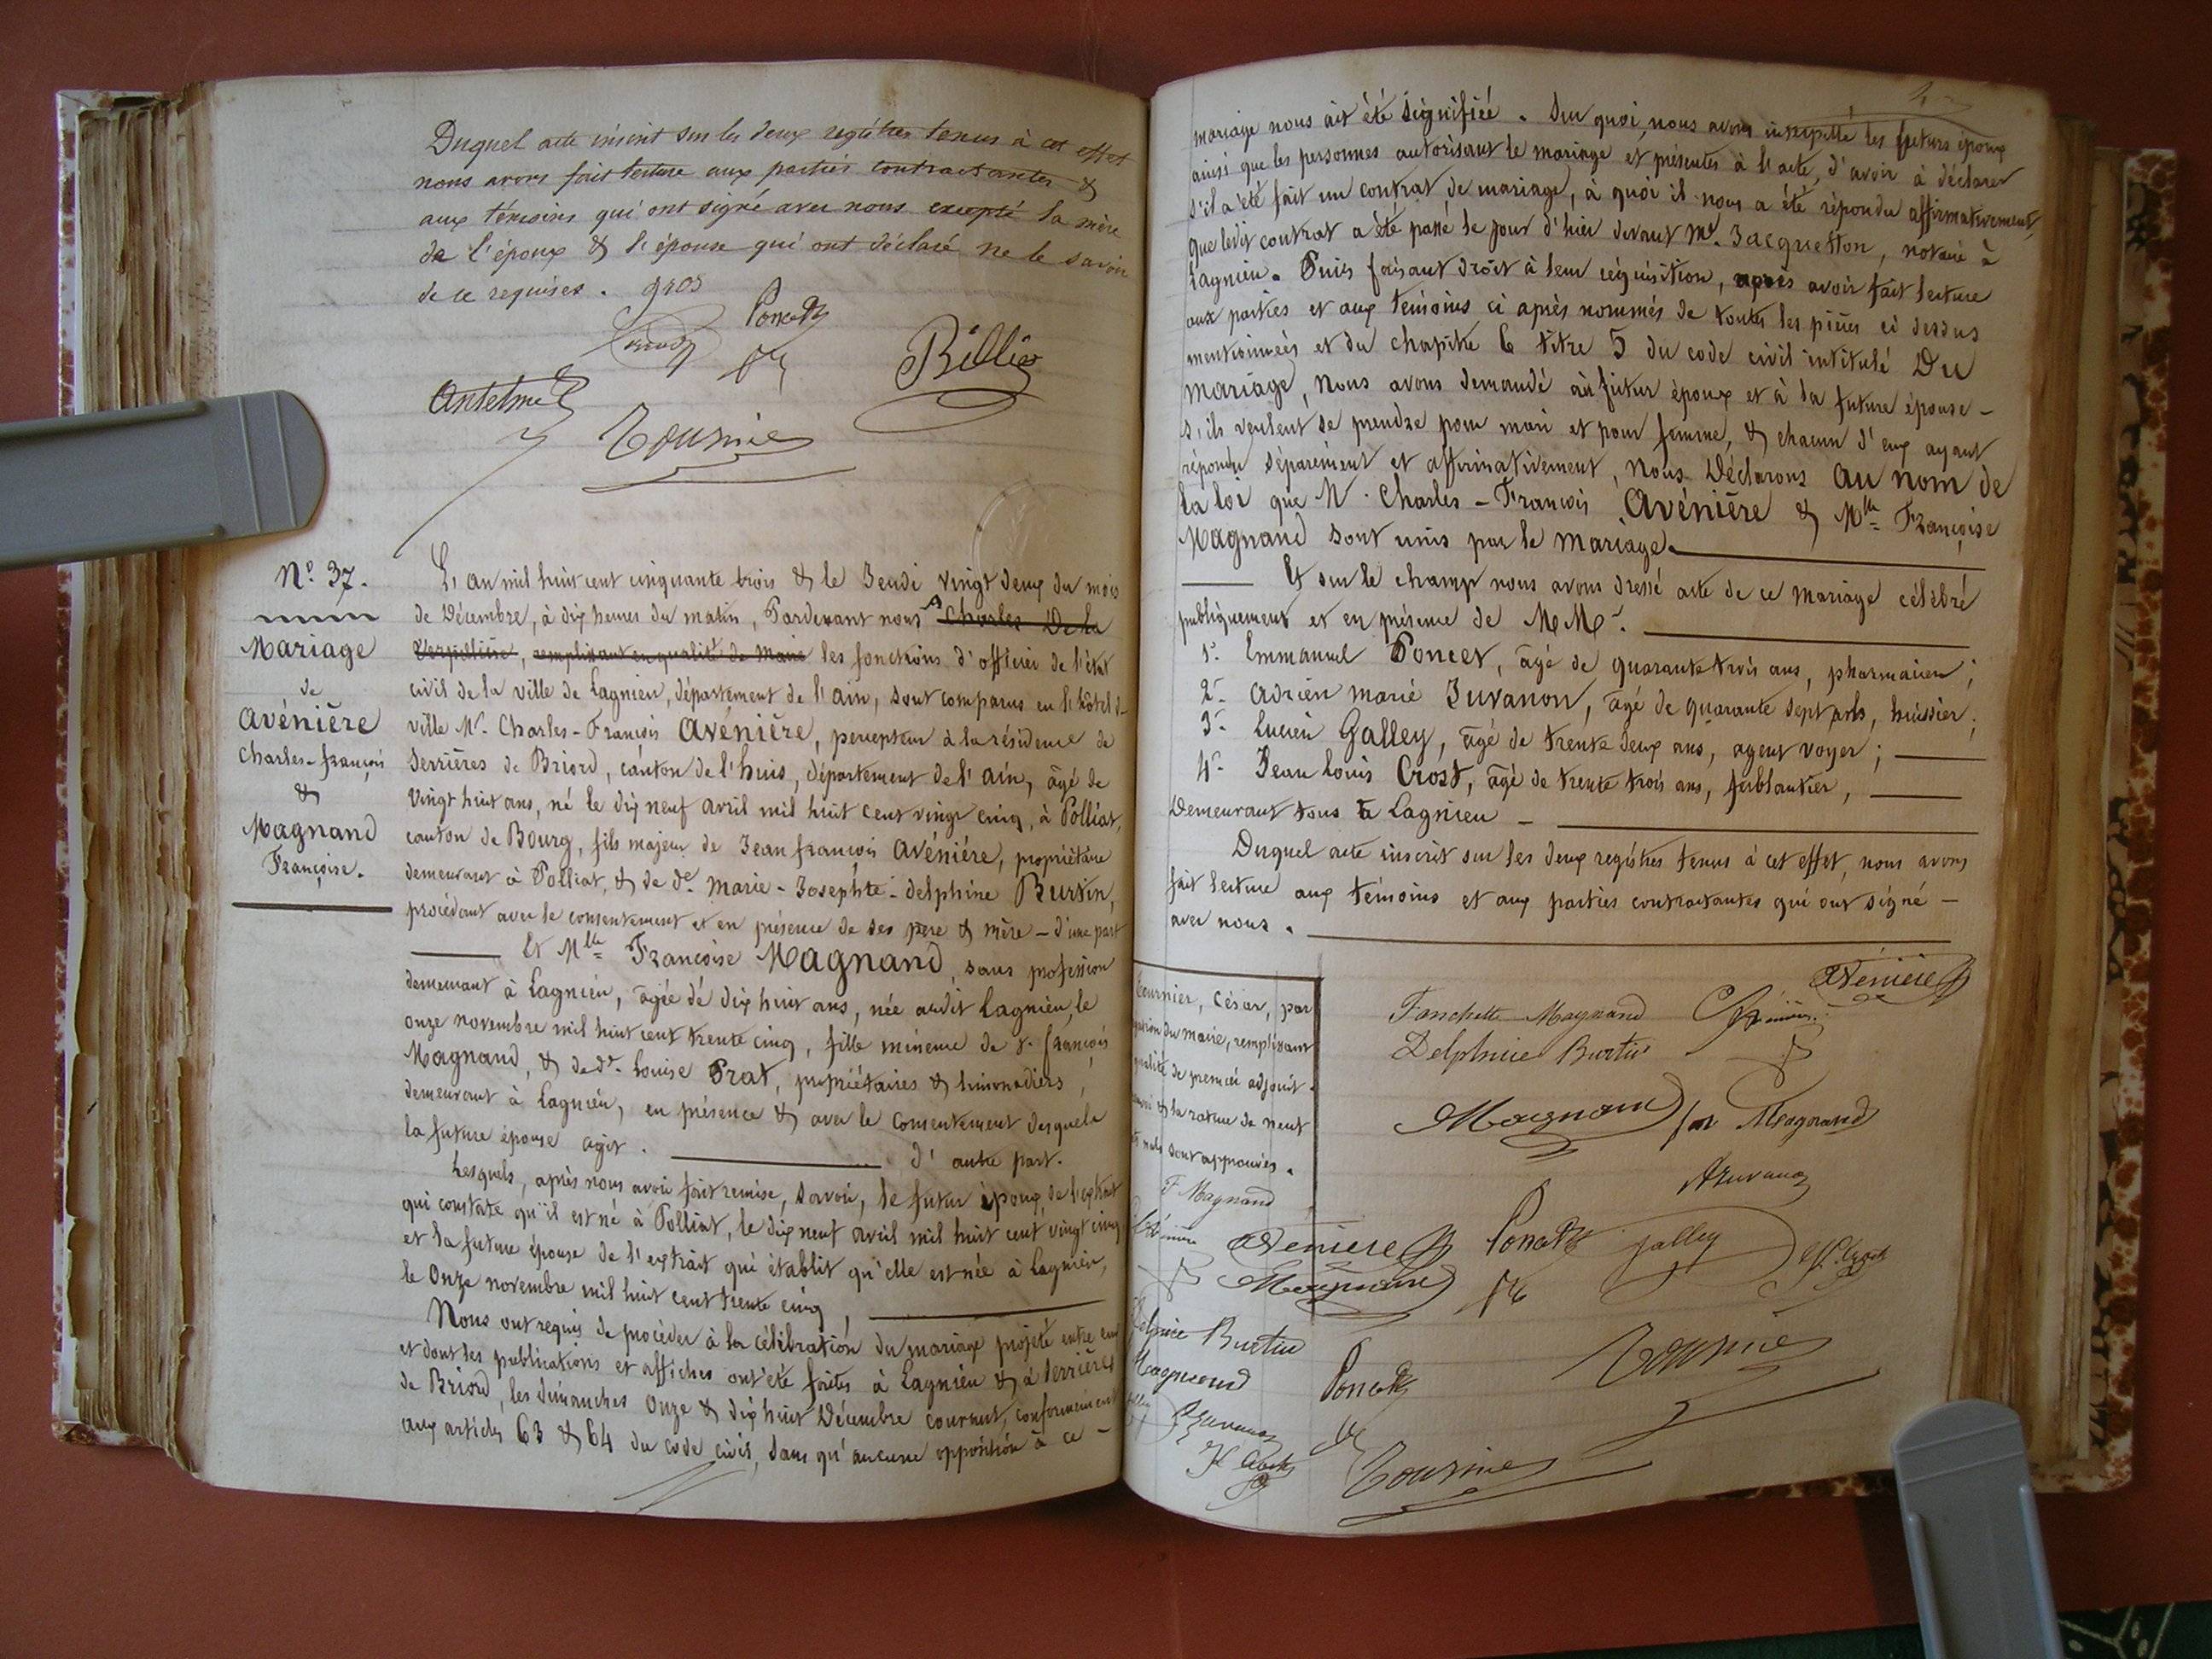 Duquel acte inscrit sur les deux registres tenus à cet effet
nous avons fait lecture aux parties contractantes &
aux témoins qui ont signé avec nous excepté la mère
de l'époux & l'épouse qui ont déclaré ne le savoir
de ce requises. gros
Poncet
Billiez
Antelme
Tournier
N.° 37.
Mariage
de
Avénière
Charles-françois
&
Magnand
Françoise.
L'an mil huit cent cinquante trois & le Jeudi vingt deux du mois
de Décembre, à dix heures du matin, Pardevant nous Charles De la
Verpillière, remplissant en qualité de Maire les fonctions d'officier de l'état
civil de la ville de Lagnieu, département de l'ain, sont comparus en l'hôtel d-
ville Mr. Charles-François Avénière, percepteur à la résidence de
Serrières de Briord, canton de l'huis, département de l'ain, âgé de
Vingt huit ans, né le dix neuf avril mil huit cent vingt cinq, à Polliat,
canton de Bourg, fils majeur de Jean françois Avénière, propriétaire
demeurant à Polliat, & de de. Marie-Josephte-delphine Burtin,
procédant avec le consentement et en présence de ses père & mère - d'une part
Et Mlle Françoise Magnand, sans profession
demeurant à Lagnieu, âgée de dix huit ans, née audit Lagnieu, le
onze novembre mil huit cent trente cinq, fille mineure de s. françois
Magnand, & de de. Louise Prat, propriétaires & limonadiers,
demeurant à Lagnieu, en présence & avec le consentement desquels
la future épouse agit. d'autre part.
Lesquels, après nous avoir fait remise, savoir, le futur époux, de l'extrait
qui constate qu'il est né à Polliat, le dix neuf avril mil huit cent vingt cinq
et la future épouse de l'extrait qui établit qu'elle est née à Lagnieu,
le Onze novembre mil huit cent trente cinq,
Nous ont requis de procéder à la célébration du mariage projeté entre eux
et dont les publications et affiches ont été faites à Lagnieu & à Serrières
de Briord, les dimanches Onze & dix huit Décembre courant, conformément
aux articles 63 & 64 du code civil, sans qu'aucune opposition à ce -
mariage nous ait été signifiée. Sur quoi, nous avons interpellé les futurs époux
ainsi que les personnes autorisant le mariage et présentes à l'acte, d'avoir à déclarer
s'il a été fait un contrat de mariage, à quoi il nous a été répondu affirmativement,
que ledit contrat a été passé le jour d'hier devant Me. Jacquetton, notaire à
Lagnieu. Puis faisant droit à leur réquisition, après avoir fait lecture
aux parties et aux témoins ci après nommés de toutes les pièces ci dessus
mentionnées et du chapitre 6 titre 5 du code civil intitulé Du
Mariage, nous avons demandé au futur époux et à la future épouse -
s'ils veulent se prendre pour mari et pour femme, & chacun d'eux ayant
répondu séparément et affirmativement, nous Déclarons au nom de
la loi que Mr. Charles-François Avénière & Mlle Françoise
Magnand sont unis par le mariage.
Et sur le champ nous avons dressé acte de ce mariage célébré
publiquement et en présence de MMrs.
1° Emmanuel Poncet, âgé de quarante trois ans, pharmacien;
2° Adrien marie Juvanon, âgé de quarante sept ans, huissier;
3° Lucien Galley, âgé de trente deux ans, agent voyer;
4° Jean Louis Crost, âgé de trente trois ans, ferblantier,
Demeurant tous à Lagnieu -
Duquel acte inscrit sur les deux registres tenus à cet effet, nous avons
fait lecture aux témoins et aux parties contractantes qui ont signé -
avec nous.
Tournier, César, par
du maire, remplissant
qualité de premier adjoint.
& la rature de neuf
mots sont approuvés.
Avenière
Fanchette Magnand
Delphine Burtin
Magnand fr Magnand
AJuvanon
F Magnand
Avenière Poncet Galley JL Crost
Magnand
Delphine Burtin
Magnand Poncet Tournier
AJuvanon
JL Crost
Tournier